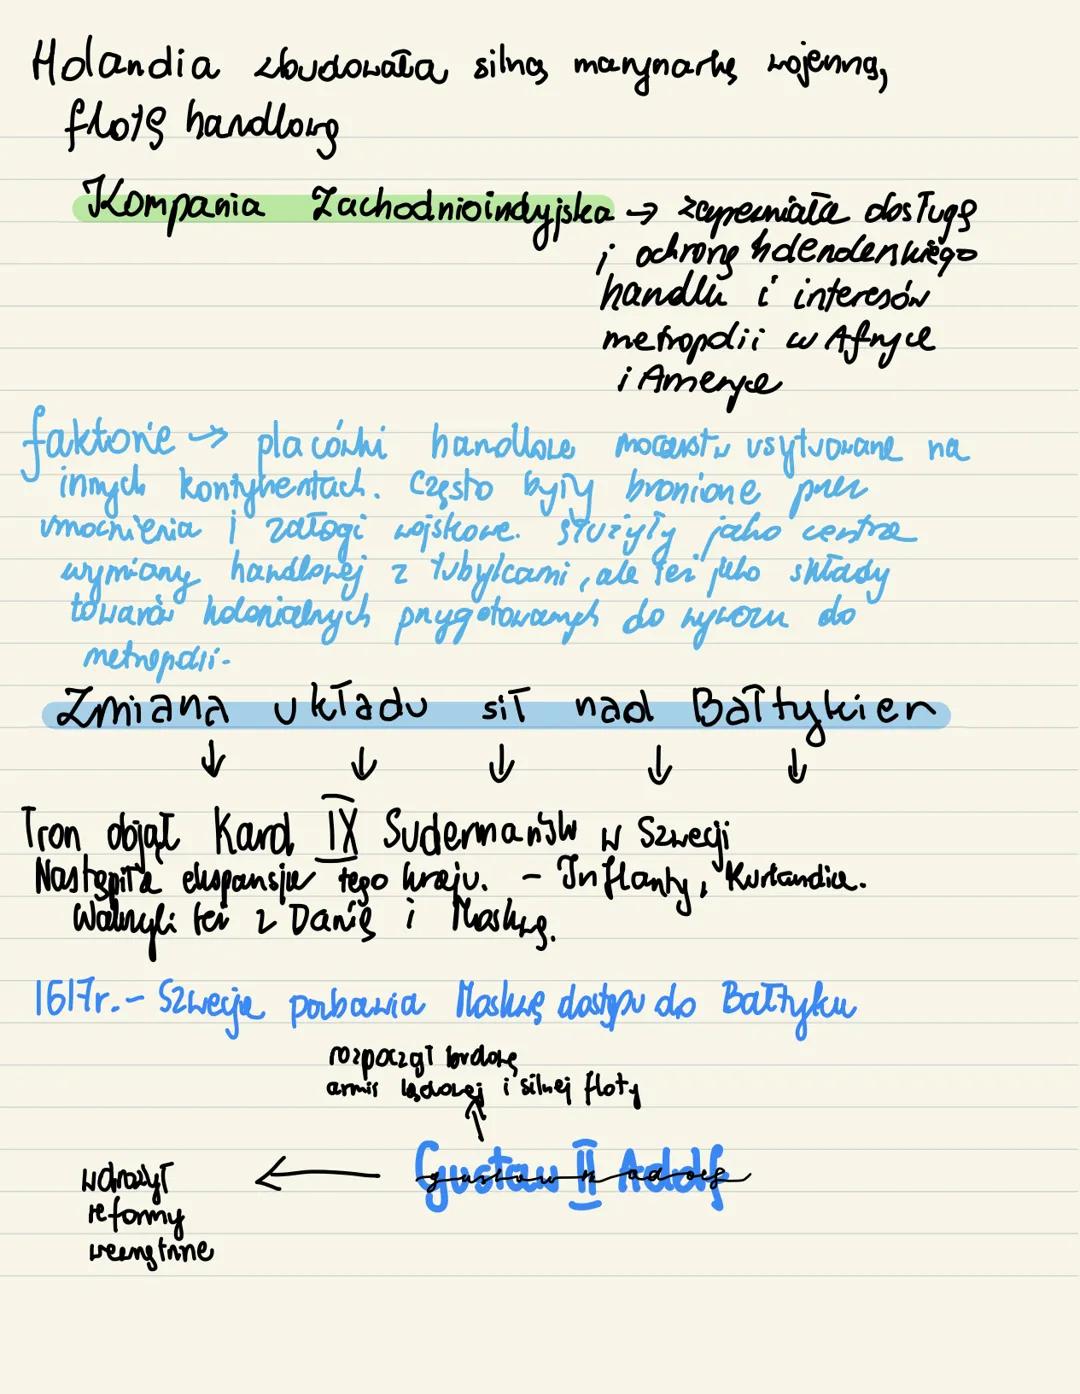 Holandia zbudowała silną marynarkę wojenną,
flotę handlową
Kompania Zachodnioindyjska → zapewniała dosługę
i ochronę holenderskiego
handlu i interesów
metropolii w Afryce
i Ameryce
faktorie → placówki handlowe mocarstw usytuowane na
innych kontynentach. Często były bronione przez
umocnienia i załogi wojskowe. Służyły jako centra
wymiany handlowej z tubylcami, ale też jako składy
towarów kolonialnych przygotowanych do wywozu do
metropolii.
Zmiana układu sił nad Bałtykiem
↓ ↓ ↓ ↓ ↓
Tron objął Karol IX Sudermański w Szwecji
Nastąpiła ekspansja tego kraju. - Inflanty, Kurlandia.
Walczyli też z Danią i Moskwą.
1617r. - Szwecja pozbawia Moskwę dostępu do Bałtyku
rozpoczął budowę
armii lądowej i silnej floty
↑
wdrożył ← Gustaw II Adolf
reformy
wewnętrzne